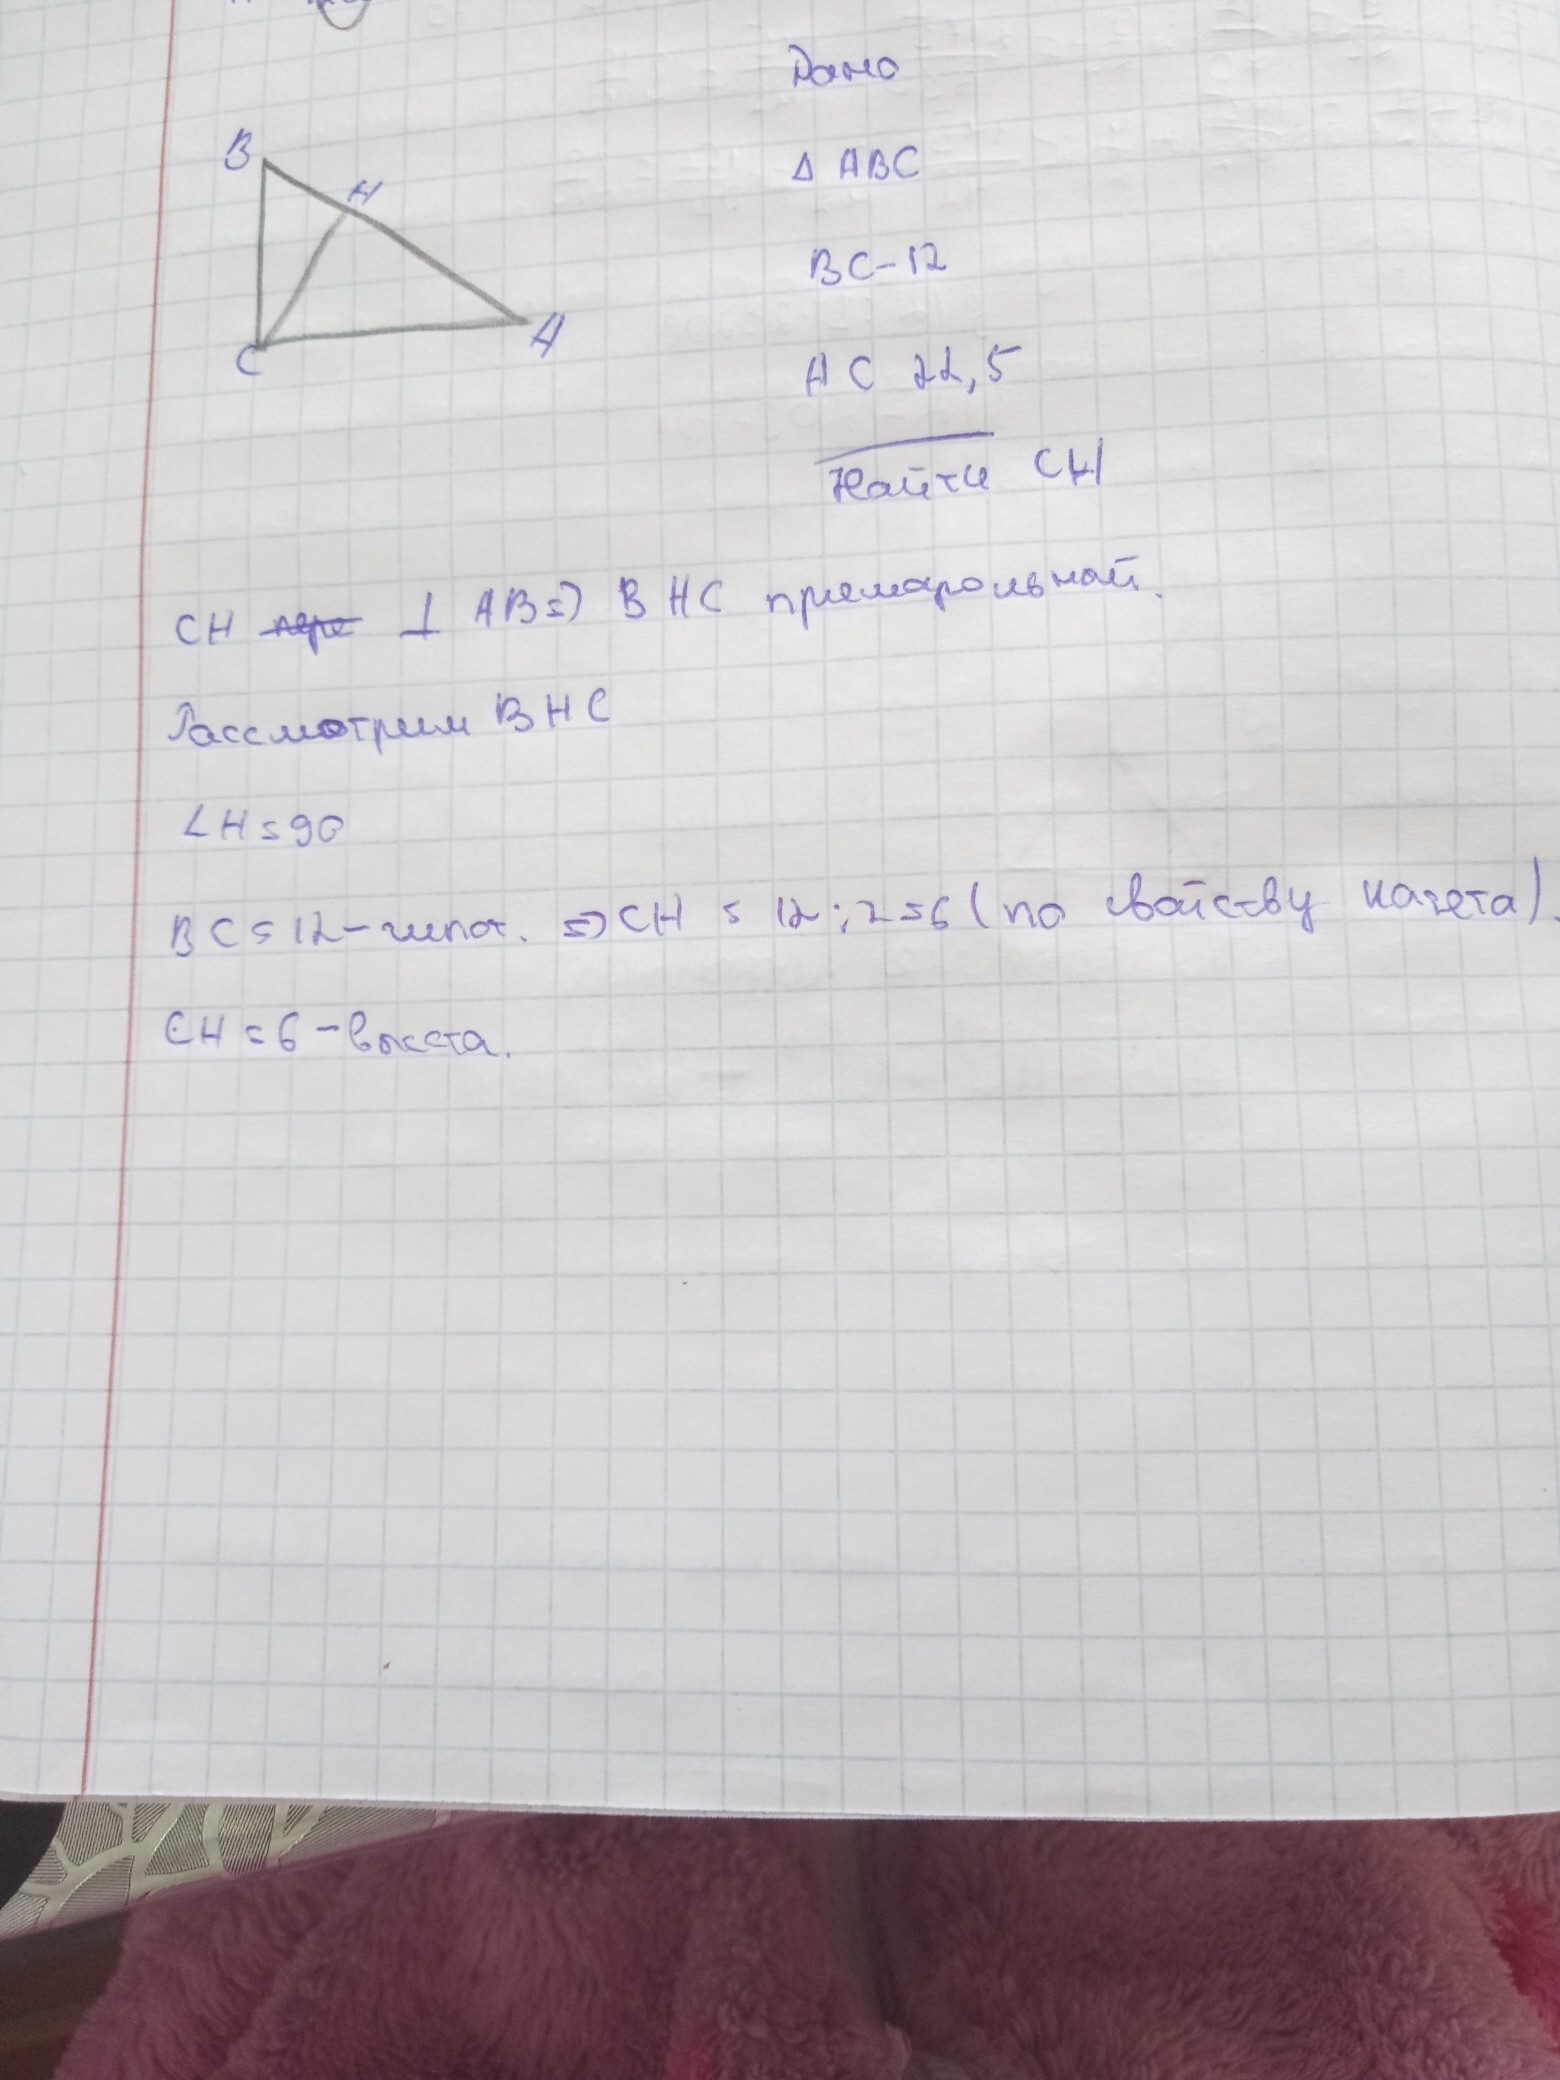 B
H
C
A
Дано
Δ ABC
BC-12
AC 22,5
Найти CH
CH пере ⊥ AB=) BHC
Рассмотрим BHC
∠H=90
BC=12-гипот. =) CH = 12:2=6 (по свойству катета).
CH=6-высота.